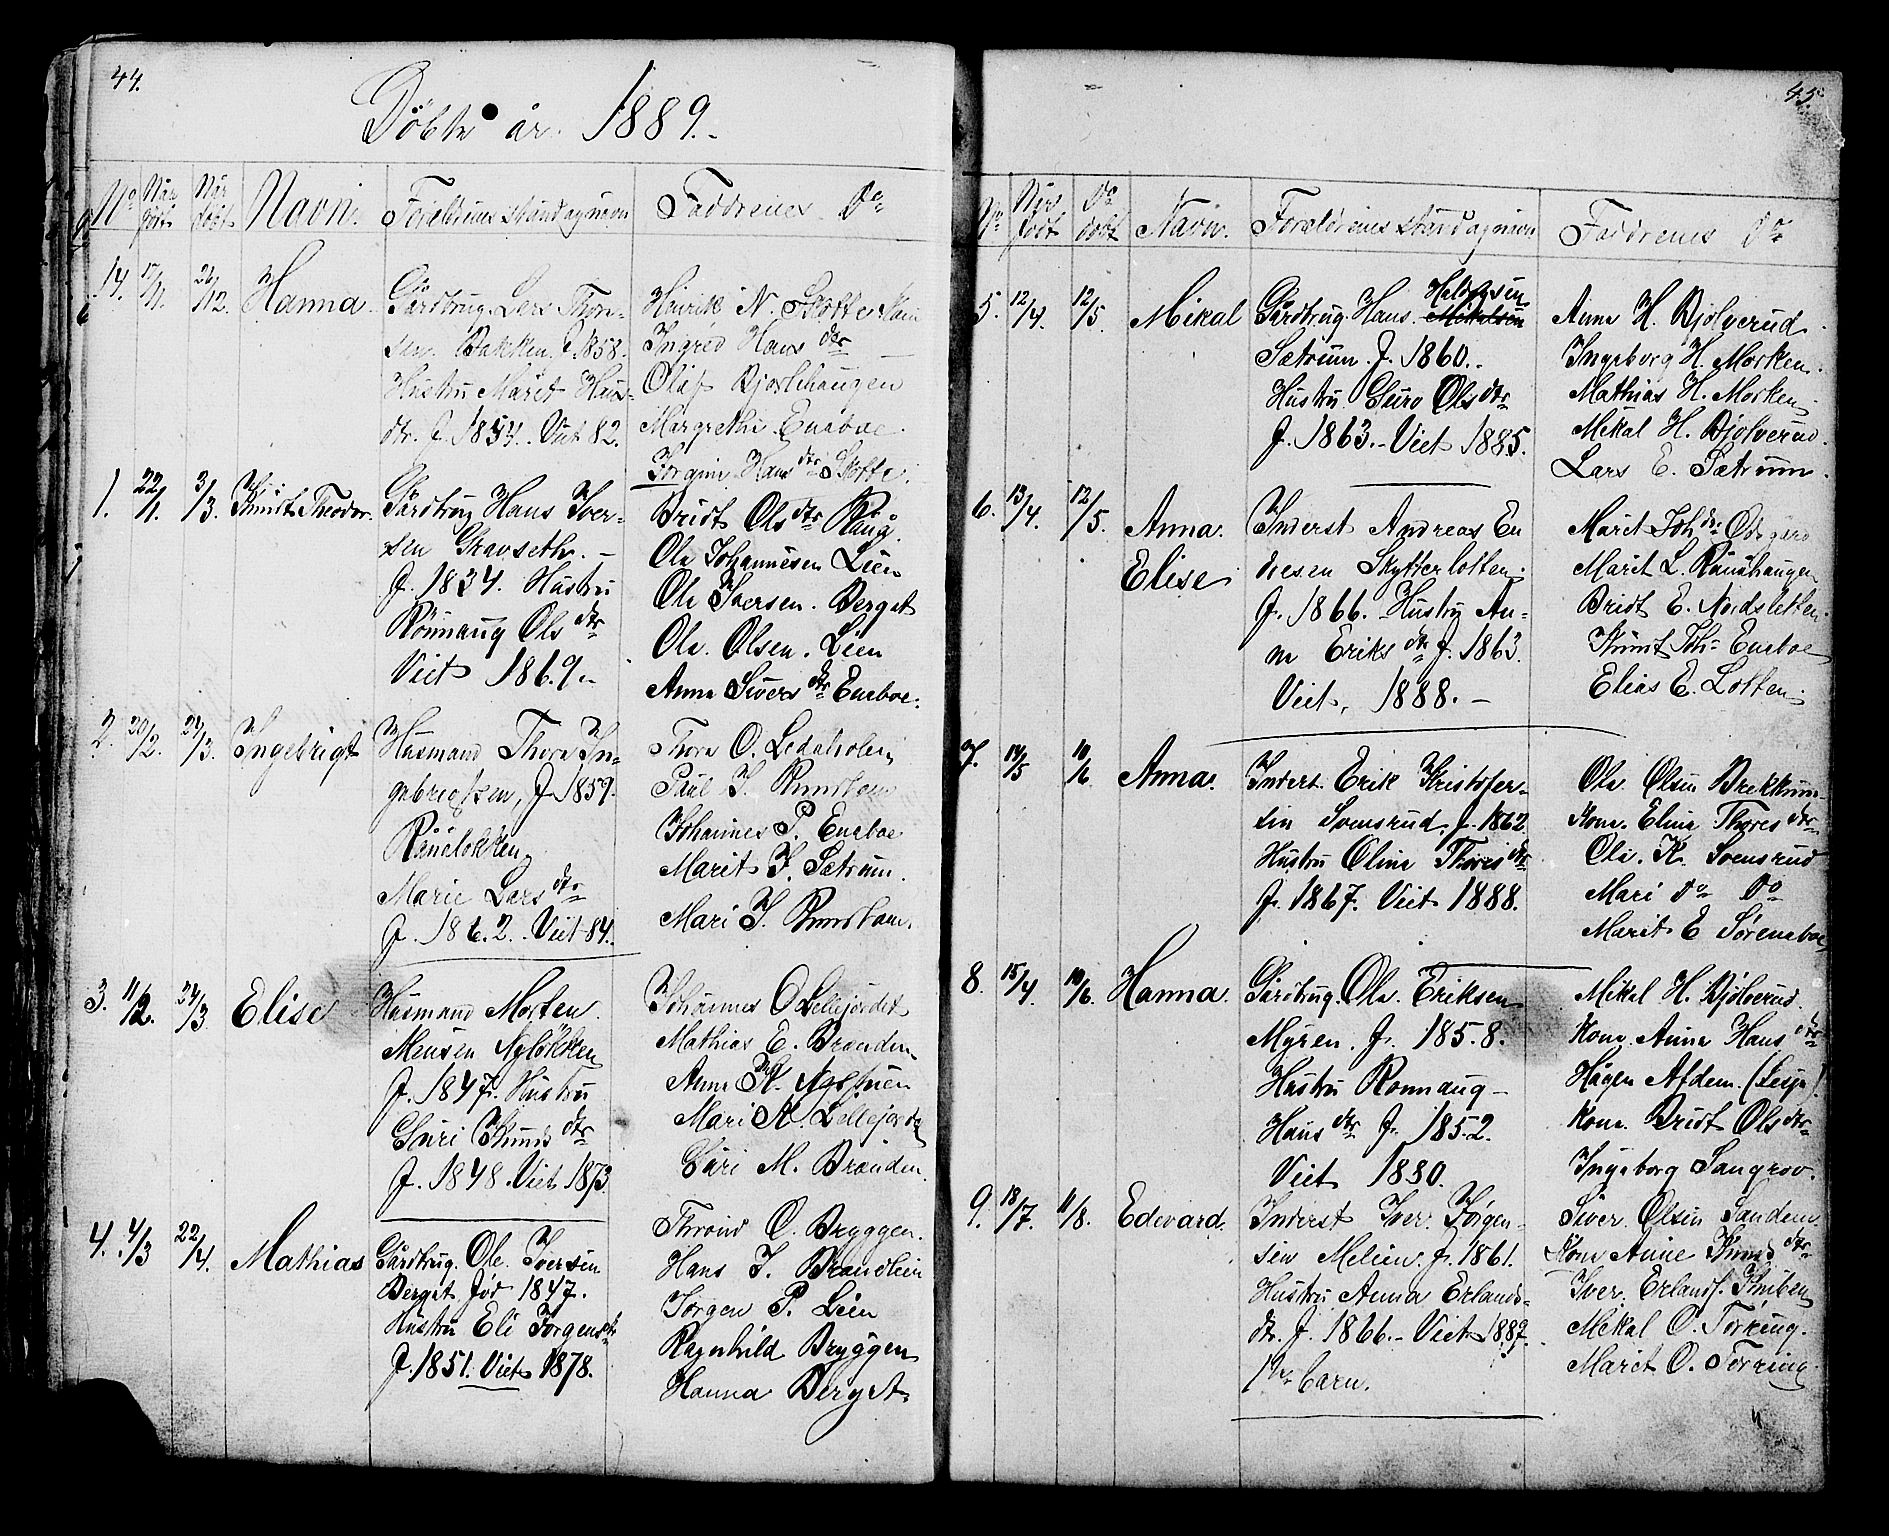 44.
Döbte år 1889.
No Når född Når döbt Navn. Foreldrenes stand og navn Faddrenes Do
14. 17/11. 26/12. Hanna.
Gårdbrug. Lars Thor-
sen. Bakken. f. 1858.
Hustru Marit Hans-
dtr. f. 1854. Viet 82.
Henrik N. Skotte
Ingred Hans dtr
Olaf Bjorlihaugen
Margrethe Eneboe.
Jorgine Hans dtr Skotte.
1. 22/1. 3/3. Knudt Theodor.
Gårdbrug Hans Iver-
sen Gravseth. -
f. 1834. Hustru
Rönnaug Ols dtr
Viet 1869.
Bridt Ols dtr Råug.
Ole Johannesen Lien
Ole Iversen. Berget
Ole. Olsen. Lien
Anne Sivers dtr Eneboe.
2. 20/2. 24/3. Ingebrigt
Husmand Thore In-
gebrigtsen, f. 1859.
Rånelökken
Marie Lars dtr
f. 1862. Viet 84.
Thore O.
Paul I.
Johannes P. Eneboe
Marit I. Sætrum.
Mari I.
3. 11/2. 24/3 Elise
Husmand Morten.
Monsen Nylökken
f. 1847. Hustru
Guri Knuds dtr
f. 1848. Viet 1873.
Johannes O Lillejordet
Mathias E. Brænden
Anne K.
Mari A. Lillejordet
Guri M. Brænden.
4. 4/3 22/4. Mathias
Gårdbrug. Ole. Iversen
Berget. föd 1847.
Hustru Eli Jorgensdtr
f. 1851. Viet 1878.
Thrond O. Bryggen.
Hans I. Brændlien
Jorgen P. Lien
Ragnhild Bryggen
Hanna Berget.
45.
No Når född Do döbt Navn. Foreldrenes stand og navn Faddrenes Do
5. 12/4. 12/5. Mikal
Gårdbrug Hans. Halvorsen Mikalsen
Sætrum. f. 1860.
Hustru. Guro Ols dtr
f. 1863. - Viet 1885.
Anne H. Bjölverud
Ingeborg H. Morken.
Mathias H. Morken.
Mikal H. Bjölverud.
Lars E. Sætrum.
6. 13/4. 12/5. Anna.
Elise
Inderst Andreas En
dresen Skytterlotten.
f. 1866. Hustru An-
ne Eriks dtr f. 1863.
Viet. 1888. -
Marit Joh dtr
Marit L. Rånåhaugen
Bridt E. Nordsletten.
Knut Joh- Eneboe
Elias E. Lotten.
7. 14/5 10/6 Anna.
Inderst. Erik Kristofer-
sen Svensrud. f. 1862.
Hustru Oline Thores dtr
f. 1867. Viet 1888.
Ole. Olsen Brekkum
Kone. Eline Thores dtr
Ole. K. Svensrud
Mari Do Do
Marit E Söreneboe
8. 15/4 10/6. Hanna.
Gårdbrug. Ole. Eriksen
Myren. f. 1858.
Hustru Ronnaug -
Hans dtr f. 1852.
Viet 1880.
Mikal H. Bjölverud.
Kone. Anne Hans dtr
Hågen Afdem. (Lesja)
Kone. Bridt Ols dtr
Ingeborg Sangrov.
9. 18/7. 11/8. Edevard.
Inderst Iver. Jörgen-
sen Melien. f. 1861.
Hustru Anna Erlands-
dtr. f. 1866. - Viet 1887.
1ste barn.
Siver. Olsen Sandem.
Kone Anne Knuds dtr
Iver. Erlands.
Mikal O. Torring.
Marit O. Torring.